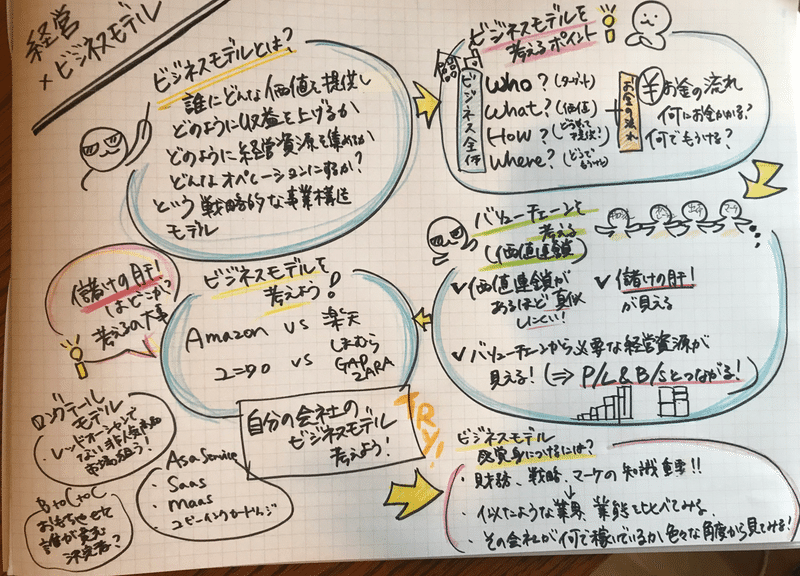 経営
+ビジネスモデル
ビジネスモデルとは?
誰にどんな価値を提供し
どのように収益を上げるか
どのように経営資源を集めるか
どんなオペレーションにするか?
という戦略的な事業構造
モデル
ビジネスモデルを
考えるポイント
ビジネス全体
Who? (ターゲット)
What? (価値)
How? (どうやって提供?)
Where? (どこで
+
お金の流れ
¥お金の流れ
何にお金かかる?
何でもうける?
バリューチェーンを
考える
(価値連鎖)
✓価値連鎖が
あるほど真似
しにくい!
✓儲けの肝!
が見える
✓バリューチェーンから必要な経営資源が
見える! (⇒P/L&B/Sとつながる!)
ビジネスモデルを
考えよう!
Amazon vs 楽天
ユニクロ vs しまむら
GAP
ZARA
儲けの肝!
はどこか?
考えるの大事
自分の会社の
ビジネスモデル
考えよう!
TRY!
ロングテール
モデル
・レッドオーシャンで
ない
市場狙う?!
BtoCtoC
おもちゃ
誰が
決定者?
As a Service
・Saas
・maas
・コピーインクカートリッジ
ビジネスモデル
感覚身につけるには?
・財務、戦略、マーケの知識重要!!
↓
・似たような業界、業態とくらべてみる
・その会社が何で稼いでいるか色々な角度から見てみる!